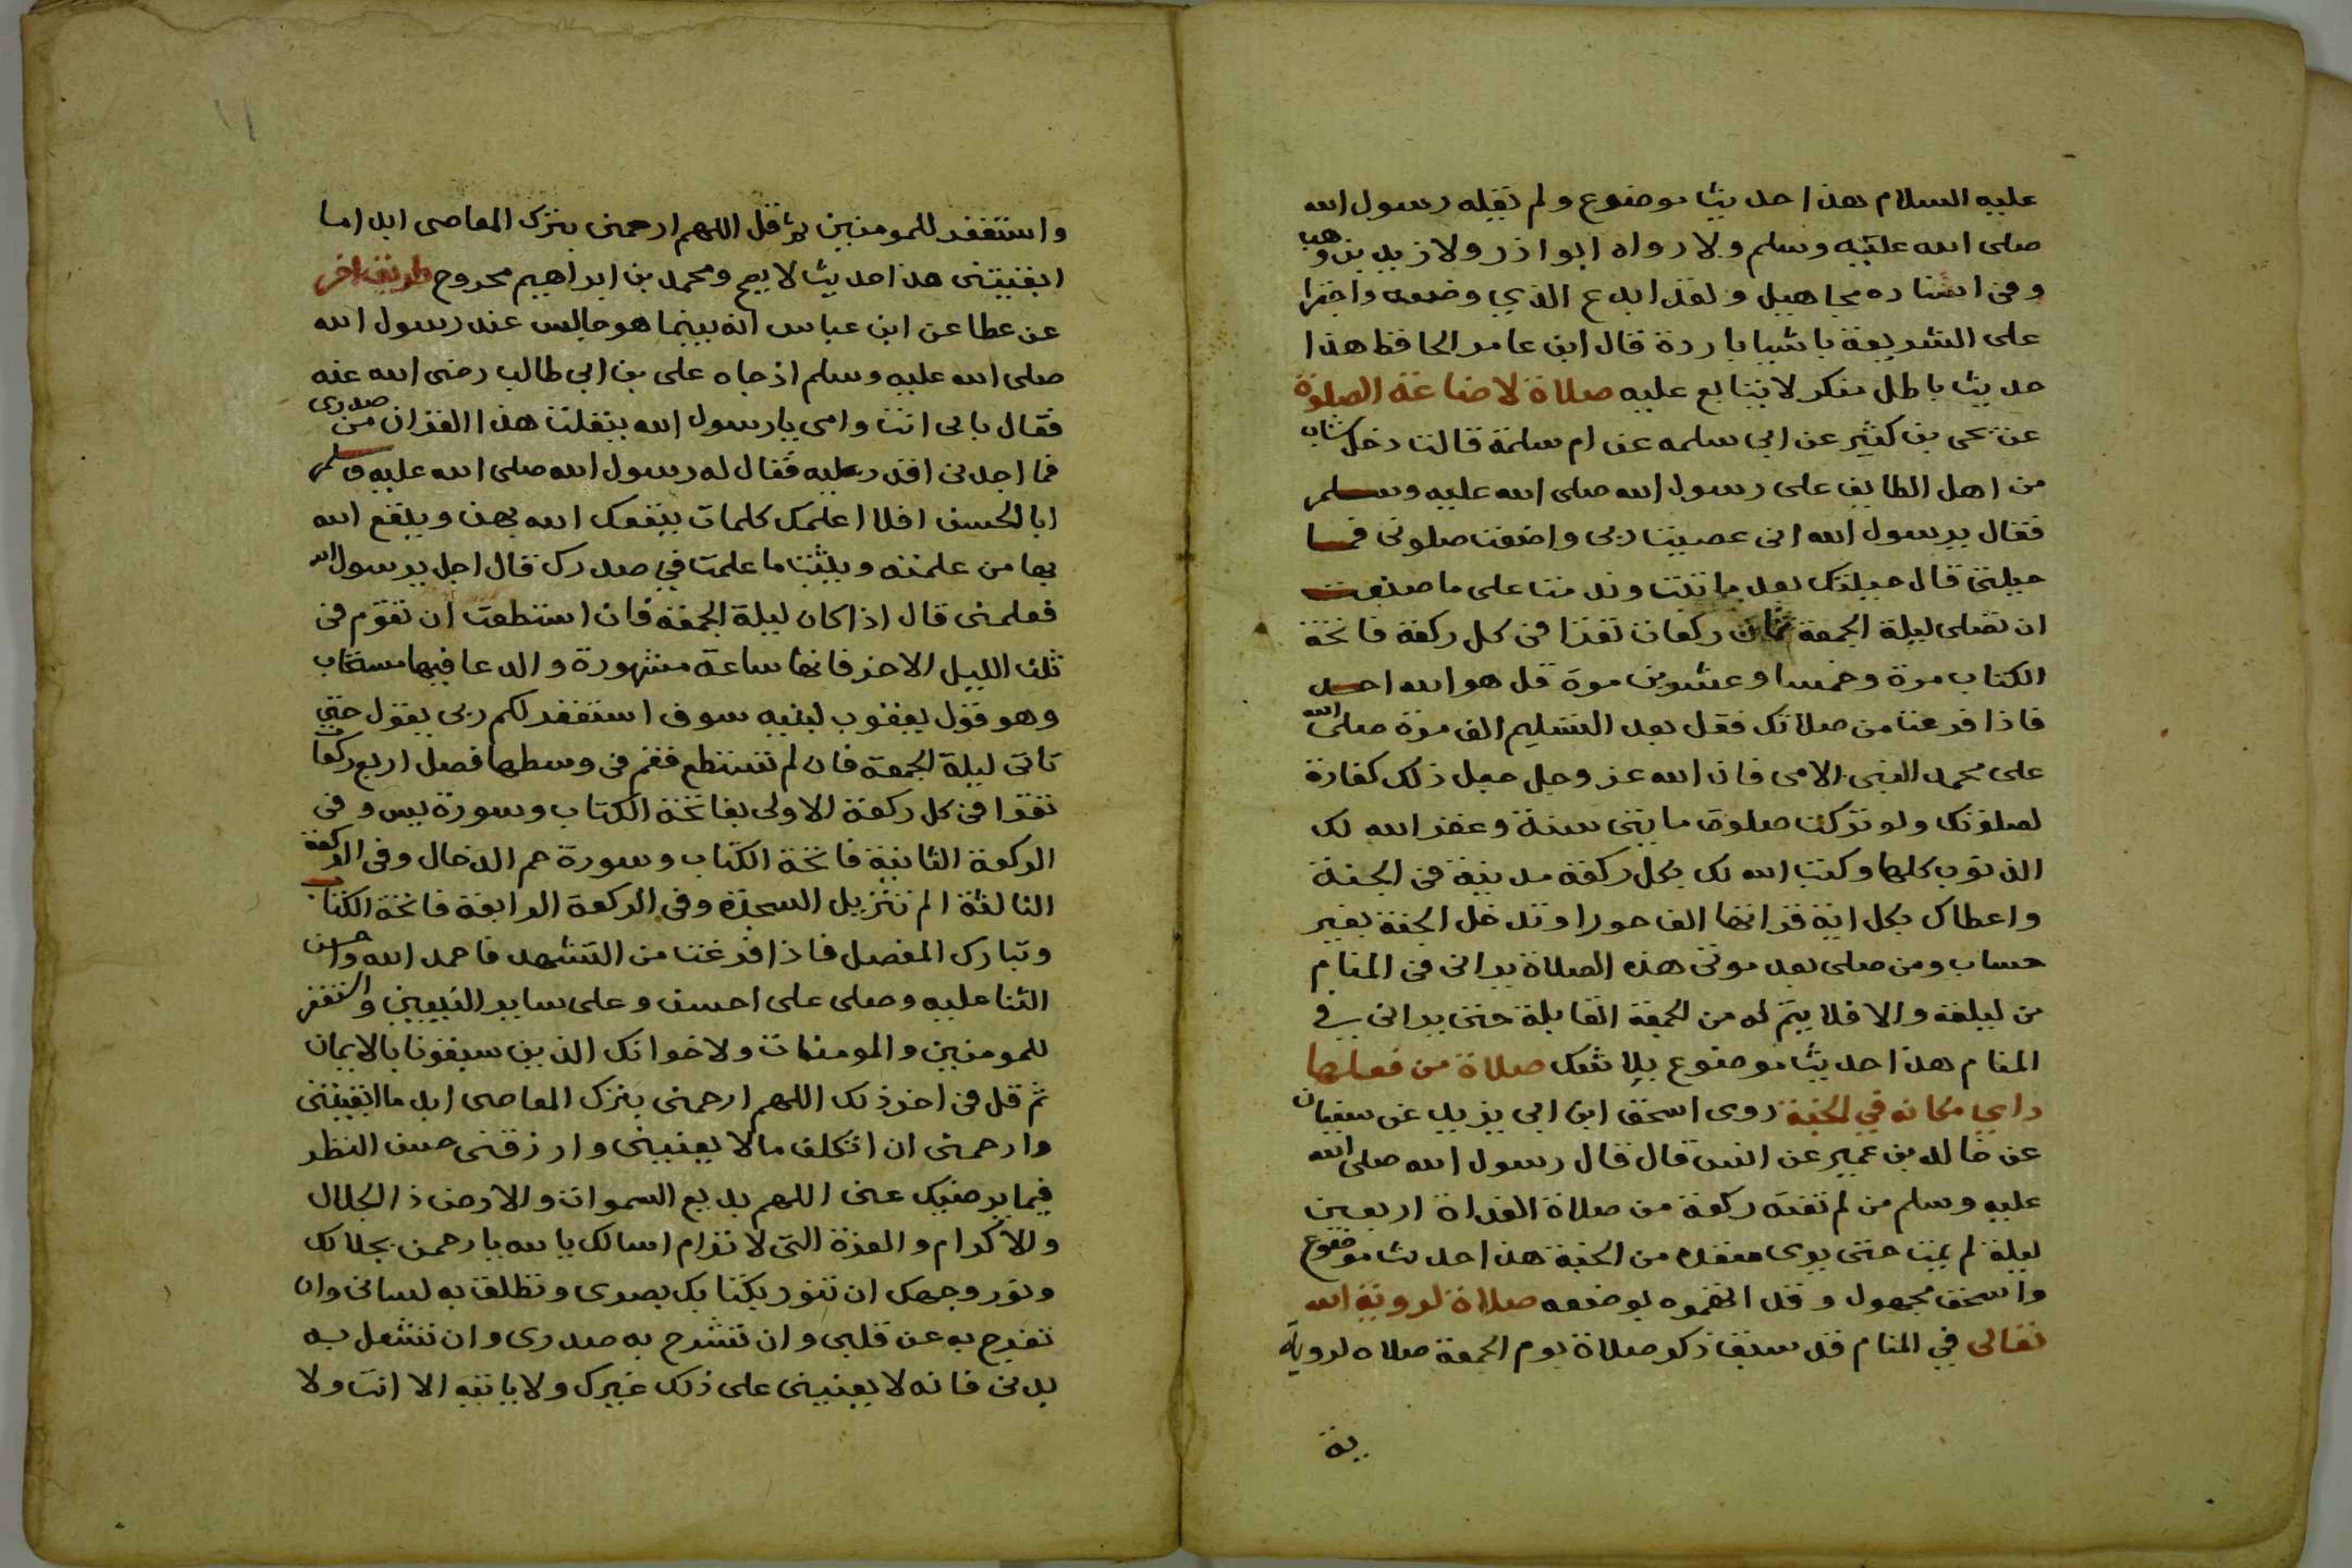 عليه السلام هذا حديث موضوع ولم يقله رسول الله
صلى الله عليه وسلم ولا رواه ابوا ذر ولا زيد بن وهب
وفي اسناده مجاهيل ولقد ابدع الذي وضعه واجترا
على الشريعة باشيا باردة قال ابن عامر الحافظ هذا
حديث باطل منكر لا يتابع عليه صلاة لاضاعة الصلوة
عن يحى بن كثير عن ابي سلمه عن ام سلمة قالت دخل شاب
من اهل الطايف على رسول الله صلى الله عليه وسلم
فقال يرسول الله انى عصيت ربى واضعت صلوتى فما
حيلتى قال حيلتك بعد ما تبت وندمت على ما صنعت
ان تصلى ليلة الجمعة ثمان ركعات تقرا فى كل ركعة فاتحة
الكتاب مرة وخمسا وعشرين مرة قل هو الله احد
فاذا فرغت من صلاتك فقل بعد التسليم الف مرة صلى الله
على محمد النبى الامى فان الله عز وجل جعل ذلك كفارة
لصلوتك ولو تركت صلوة مايتى سنة وغفر الله لك
الذنوب كلها وكتب الله لك بكل ركعة مدينة فى الجنة
واعطاك بكل اية قراتها الف حورا وتدخل الجنة بغير
حساب ومن صلى بعد موتى هذه الصلاة يرانى فى المنام
من ليلته والا فلا يتم له من الجمعة القابلة حتى يرانى في
المنام هذا حديث موضوع بلا شك صلاة من فعلها
راي مكانه في الجنة روى اسحق ابن ابى يزيد عن سفيان
عن خالد بن عمير عن انس قال قال رسول الله صلى الله
عليه وسلم من لم تفته ركعة من صلاة الغداة اربعين
ليلة لم يمت حتى يرى مقعده من الجنة هذا حديث موضوع
واسحق مجهول وقد اتهموه بوضعه صلاة لروية الله
تعالى في المنام قد سبق ذكر صلاة يوم الجمعة صلاه لروية
ية
١١
واستغفر للمومنين ثم قل اللهم ارحمنى بترك المعاصى ابدا ما
ابقيتنى هذا حديث لا يصح ومحمد بن ابراهيم مجروح طريق اخر
عن عطا عن ابن عباس انه بينما هو جالس عند رسول الله
صلى الله عليه وسلم اذ جاه على بن ابي طالب رضى الله عنه
فقال بابى انت وامى يارسول الله يتفلت هذا القران من صدرى
فما اجدنى اقدر عليه فقال له رسول الله صلى الله عليه وسلم
ابا الحسن افلا اعلمك كلمات ينفعك الله بهن وينفع الله
بها من علمته ويثبت ما علمت في صدرك قال اجل يرسول الله
فعلمنى قال اذا كان ليلة الجمعة فان استطعت ان تقوم فى
ثلث الليل الاخر فانها ساعة مشهورة والدعا فيها مستجاب
وهو قول يعقوب لبنيه سوف استغفر لكم ربى يقول حتي
تاتى ليلة الجمعة فان لم تستطع فقم فى وسطها فصل اربع ركعا
تقرا فى كل ركعة الاولى بفاتحة الكتاب وسورة يس وفى
الركعة الثانية فاتحة الكتاب وسورة حم الدخان وفى الركعة
الثالثة الم تنزيل السجدة وفى الركعة الرابعة فاتحة الكتاب
وتبارك المفصل فاذا فرغت من التشهد فاحمد الله واحسن
الثنا عليه وصلى على احسن وعلى ساير النبيين واستغفر
للمومنين والمومنات ولاخوانك الذين سبقونا بالايمان
ثم قل فى اخر ذلك اللهم ارحمنى بترك المعاصى ابد ما ابقيتنى
وارحمنى ان اتكلف مالا يعنينى وارزقنى حسن النظر
فيما يرضيك عنى اللهم بديع السموات والارض ذا الجلال
والاكرام والعزة التى لا ترام اسالك يا الله يا رحمن بجلالك
ونور وجهك ان تنور بكتابك بصرى وتطلق به لسانى وان
تفرج به عن قلبى وان تشرح به صدرى وان تشغل به
بدنى فانه لا يعنينى على ذلك غيرك ولا ياتيه الا انت ولا